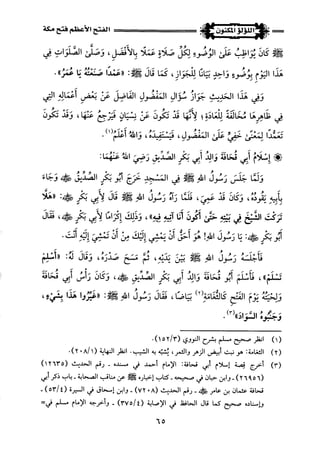 الفتح الأعظم فتح مكة
اللؤلؤ المكنون
ﷺ كان يواظب على الوضوء لكل صلاة عملا بالأفضل، وصلى الصلوات في
هذا اليوم بوضوء واحد بيانا للجواز، كما قال ﷺ: «عمدا صنعته يا عمر».
وفي هذا الحديث جواز سؤال المفضول الفاضل عن بعض أعماله التي
في ظاهرها مخالفة للعادة، لأنها قد تكون عن نسيان فيرجع عنها، وقد تكون
تعمدا لمعنى خفي على المفضول، فيستفيده، والله أعلم(١).
إسلام أبي قحافة والد أبي بكر الصديق رضي الله عنهما:
ولما جلس رسول الله ﷺ في المسجد خرج أبو بكر الصديق ﷺ وجاء
بأبيه يقوده، وكان قد عمي، فلما رآه رسول الله ﷺ قال لأبي بكر ﷺ: «هلا
تركت الشيخ في بيته حتى أكون أنا آتيه فيه»، وذلك إكراما لأبي بكر ﷺ، فقال
أبو بكر ﷺ: يا رسول الله! هو أحق أن يمشي إليك من أن تمشي إليه أنت.
فأجلسه رسول الله ﷺ بين يديه، ثم مسح صدره، وقال له: «أسلم
تسلم»، فأسلم أبو قحافة والد أبي بكر الصديق ﷺ، وكان رأس أبي قحافة
ولحيته يوم الفتح كالثغامة(٢) بياضا، فقال رسول الله ﷺ: «غيروا هذا بشيء،
وجنبوه السواد»(٣).
(١) انظر صحيح مسلم بشرح النووي (١٥٢/٣).
(٢) الثغامة: هو نبت أبيض الزهر والثمر، يشبه به الشيب. انظر النهاية (٢٠٨/١).
(٣) أخرج قصة إسلام أبي قحافة: الإمام أحمد في مسنده - رقم الحديث (١٢٦٣٥)
(٢٦٩٥٦) - وابن حبان في صحيحه - كتاب إخباره ﷺ عن مناقب الصحابة - باب ذكر أبي
قحافة عثمان بن عامر ﷺ - رقم الحديث (٧٢٠٨) - وابن إسحاق في السيرة (٥٣/٤) -
وإسناده صحيح كما قال الحافظ في الإصابة (٣٧٥/٤) - وأخرجه الإمام مسلم في =
٦٥